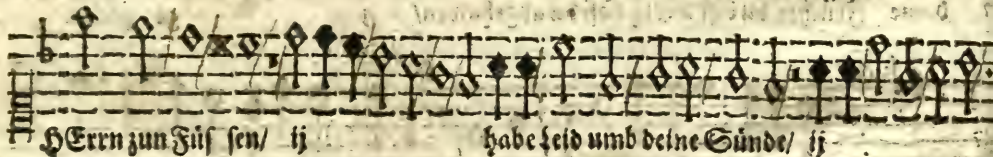 HErrn zun Füs sen/ ij habe Leid umb deine Sünde/ ij